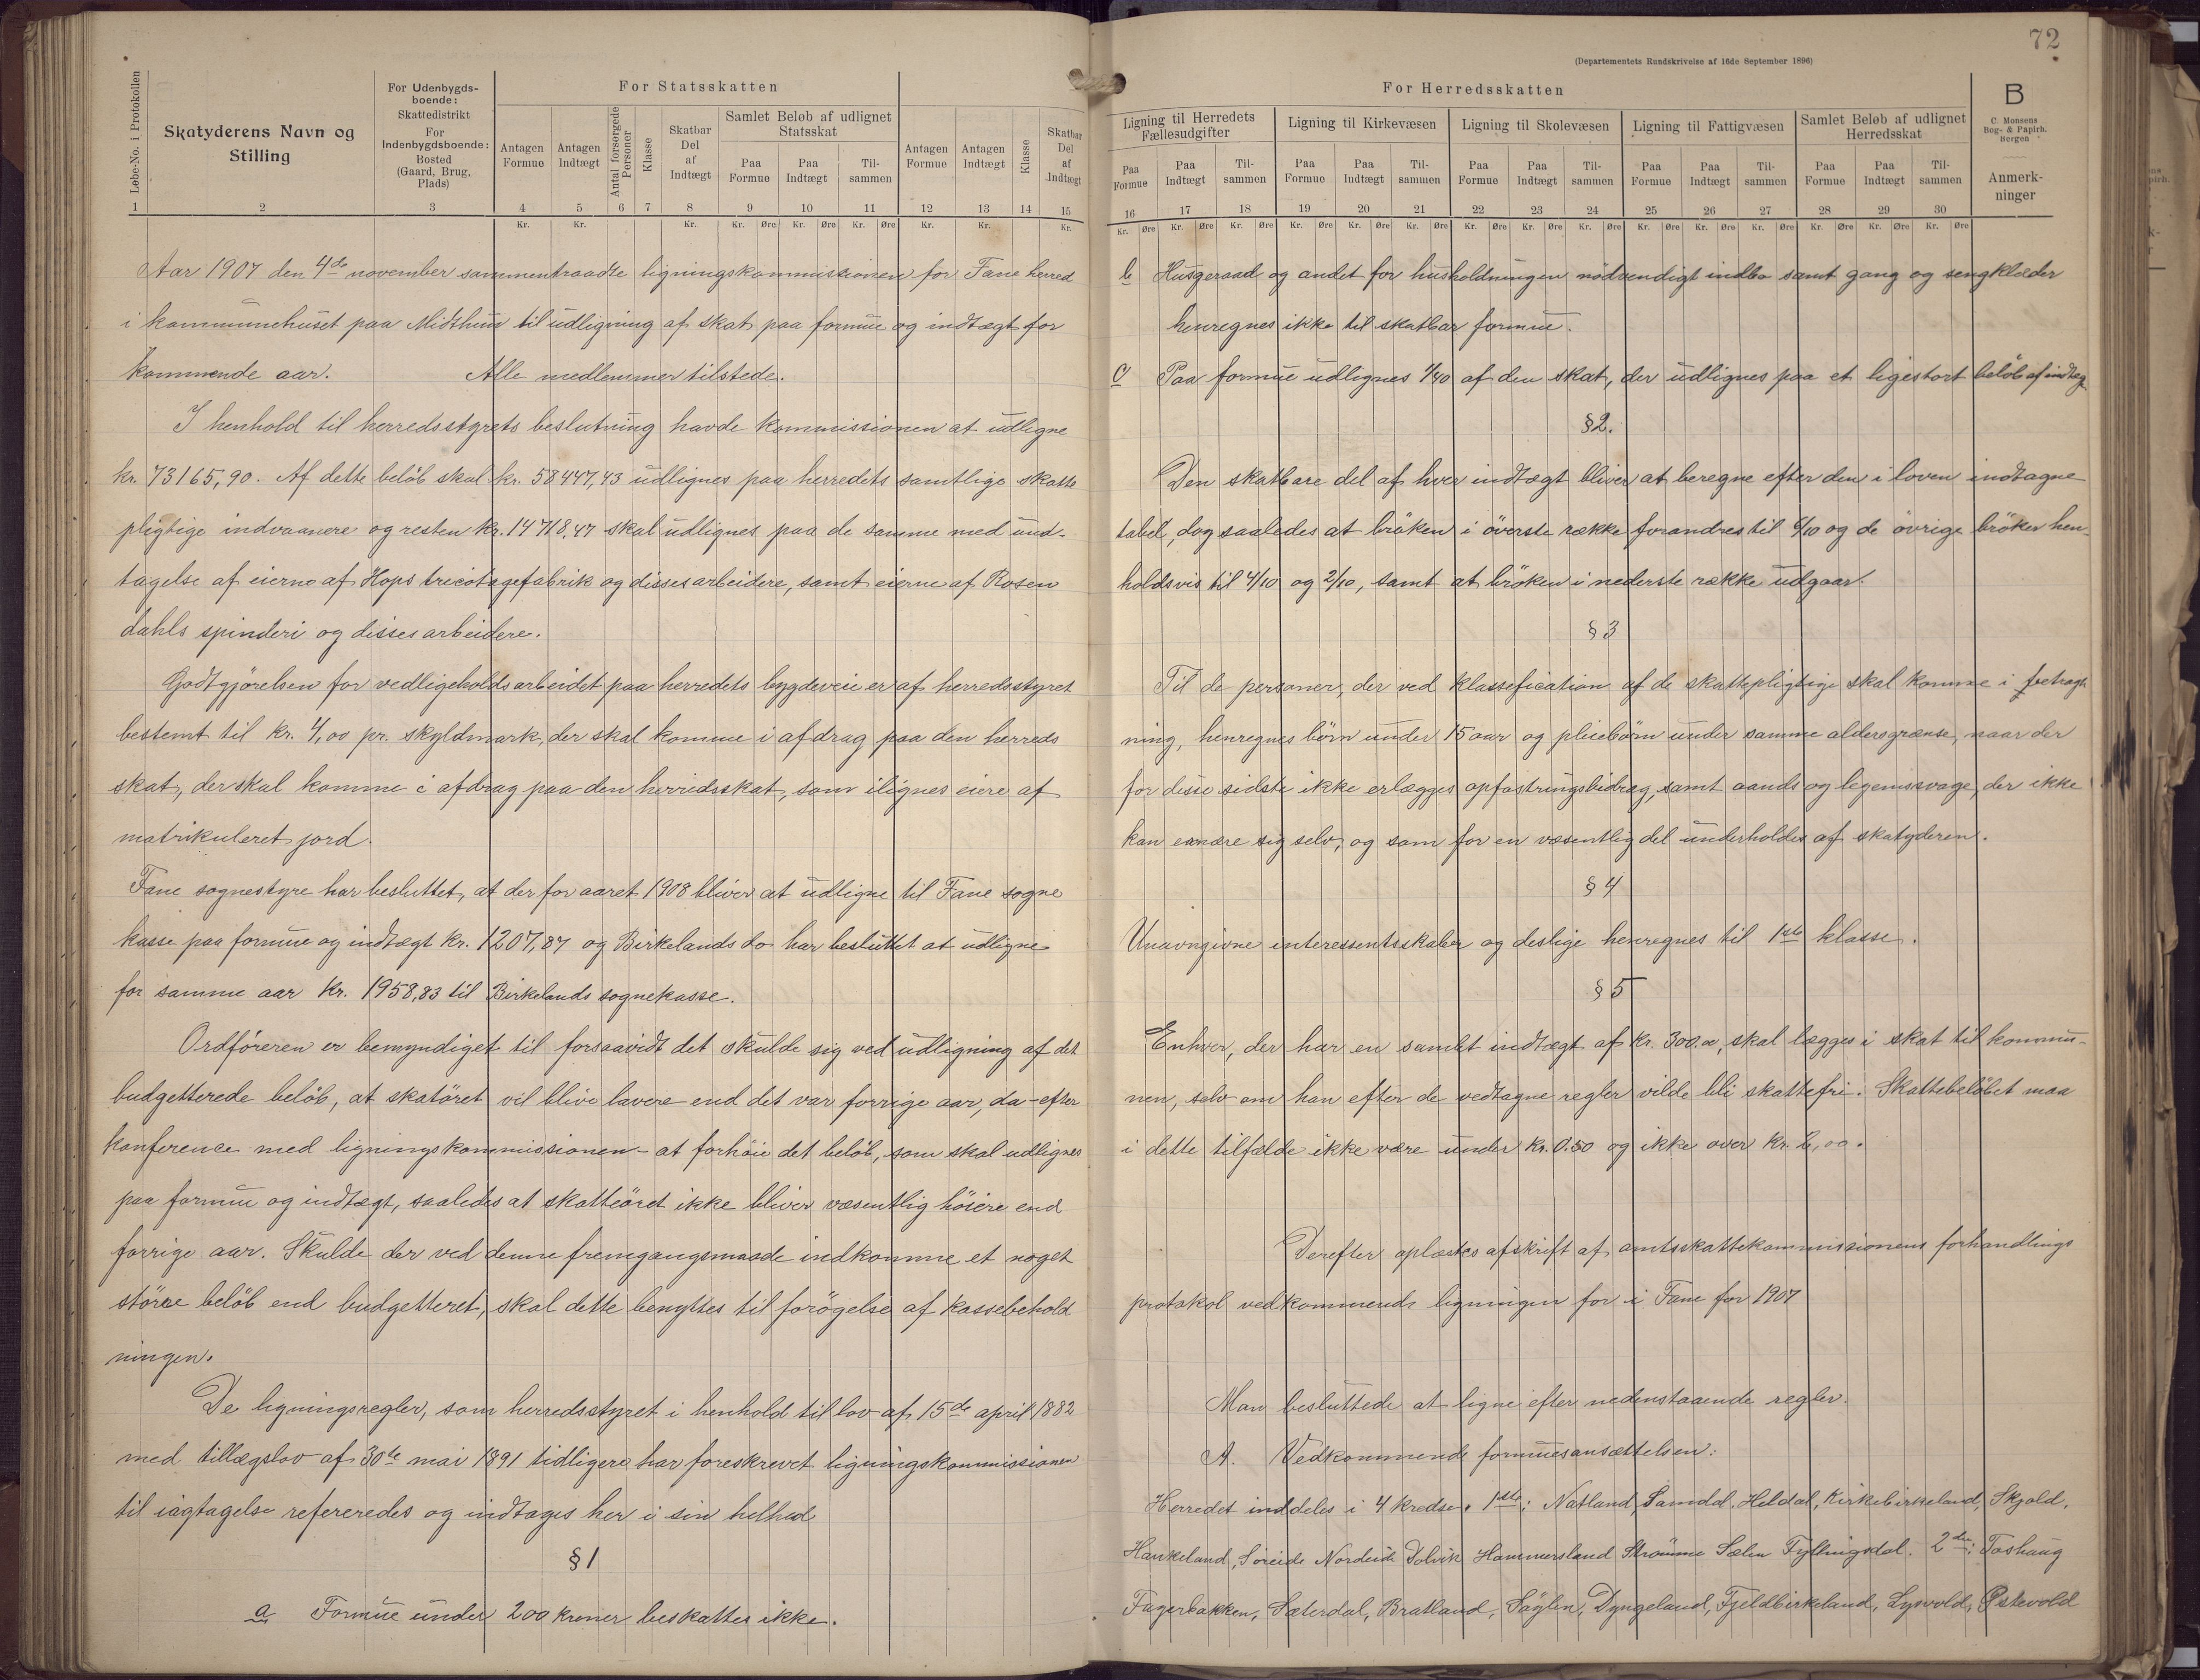 72
(Departementets Rundskrivelse af 16de September 1896)
Løbe-No. i Protokollen
Skatyderens Navn og Stilling
For Udenbygdsboende: Skattedistrikt For Indenbygdsboende: Bosted (Gaard, Brug, Plads)
For Statsskatten
Antagen Formue
Antagen Indtægt
Antal forsørgede Personer
Klasse
Skatbar Del af Indtægt
Samlet Beløb af udlignet Statsskat
Paa Formue
Paa Indtægt
Tilsammen
Antagen Formue
Antagen Indtægt
Klasse
Skatbar Del af Indtægt
1 2 3 4 5 6 7 8 9 10 11 12 13 14 15
Kr. Kr. Kr. Kr. Øre Kr. Øre Kr. Øre Kr. Kr. Kr.
Aar 1907 den 4de november sammentraadte ligningskommissionen for Fane herred
i kommunehuset paa Midthun til udligning af skat paa formue og indtægt for
kommende aar. Alle medlemmer tilstede.
I henhold til herredsstyrets beslutning havde kommissionen at udligne
kr. 73165,90. Af dette beløb skal kr. 58447,43 udlignes paa herredets samtlige skatte
pligtige indvaanere og resten kr. 14718,47 skal udlignes paa de samme med und-
tagelse af eierne af Hops tricotagefabrik og disses arbeidere, samt eierne af Rosen
dahls spinderi og disses arbeidere.
Godtgjørelsen for vedligeholdsarbeidet paa herredets bygdeveie er af herredsstyret
bestemt til kr. 4,00 pr. skyldmark, der skal komme i afdrag paa den herreds
skat, der skal komme i afdrag paa den herredsskat, som ilignes eiere af
matrikuleret jord.
Fane sognestyre har besluttet, at der for aaret 1908 bliver at udligne til Fane sogne
kasse paa formue og indtægt kr. 1207,87 og Birkelands do har besluttet at udligne
for samme aar kr. 1958,83 til Birkelands sognekasse.
Ordføreren er bemyndiget til forsaavidt det skulde sig ved udligning af det
budgetterede beløb, at skatøret vil blive lavere end det var forrige aar, da - efter
konference med ligningskommissionen - at forhøie det beløb, som skal udlignes
paa formue og indtægt, saaledes at skatteøret ikke bliver væsentlig høiere end
forrige aar. Skulde der ved denne fremgangsmaade indkomme et noget
større beløb end budgetteret, skal dette benyttes til forøgelse af kassebehold
ningen.
De ligningsregler, som herredsstyret i henhold til lov af 15de april 1882
med tillægslov af 30te mai 1891 tidligere har foreskrevet ligningskommissionen
til iagtagelse refereredes og indtages her i sin helhed
§ 1
a Formue under 200 kroner beskattes ikke.
For Herredsskatten
Ligning til Herredets Fællesudgifter
Ligning til Kirkevæsen
Ligning til Skolevæsen
Ligning til Fattigvæsen
Samlet Beløb af udlignet Herredsskat
B
C. Monsens Bog- & Papirh. Bergen
Anmerkninger
Paa Formue Paa Indtægt Tilsammen Paa Formue Paa Indtægt Tilsammen Paa Formue Paa Indtægt Tilsammen Paa Formue Paa Indtægt Tilsammen Paa Formue Paa Indtægt Tilsammen
16 17 18 19 20 21 22 23 24 25 26 27 28 29 30
Kr. Øre Kr. Øre Kr. Øre Kr. Øre Kr. Øre Kr. Øre Kr. Øre Kr. Øre Kr. Øre Kr. Øre Kr. Øre Kr. Øre Kr. Øre Kr. Øre Kr. Øre
b Husgeraad og andet for husholdningen nødvendigt indbo samt gang og sengklæder
henregnes ikke til skatbar formue.
c Paa formue udlignes 1/40 af den skat, der udlignes paa et ligestort beløb af indtæg
§ 2.
Den skatbare del af hver indtægt bliver at beregne efter den i loven indtagne
tabel, dog saaledes at brøken i øverste række forandres til 6/10 og de øvrige brøker hen-
holdsvis til 4/10 og 2/10, samt at brøken i nederste række udgaar.
§ 3
Til de personer, der ved klassefication af de skattepligtige skal komme i betragt
ning, henregnes børn under 15 aar og pleiebørn under samme aldersgrænse, naar der
for disse sidste ikke erlægges opfostringsbidrag, samt aands og legemssvage, der ikke
kan ernære sig selv, og som for en væsentlig del underholdes af skatyderen.
§ 4
Unavngivne interessentsskaber og deslige henregnes til 1ste klasse.
§ 5
Enhver, der har en samlet indtægt af kr. 300.00, skal lægges i skat til kommu-
nen, selv om han efter de vedtagne regler vilde bli skattefri. Skattebeløbet maa
i dette tilfælde ikke være under kr. 0.50 og ikke over kr. 2,00.
Derefter oplæstes afskrift af amtsskattekommissionens forhandlings
protokol vedkommende ligningen for i Fane for 1907
Man besluttede at ligne efter nedenstaaende regler.
A. Vedkommende formuesansættelsen:
Herredet inddeles i 4 kredse. 1ste: Natland, Samdal, Heldal, Kirkebirkeland, Skjold,
Haukeland, Søreide Nordeide Dolvik Hammersland Straume Sælen Fyllingsdal. 2den: Toshaug
Fagerbakken, Sæterdal, Bratland, Døngeland, Fjeldbirkeland, Lysvold, Østevold